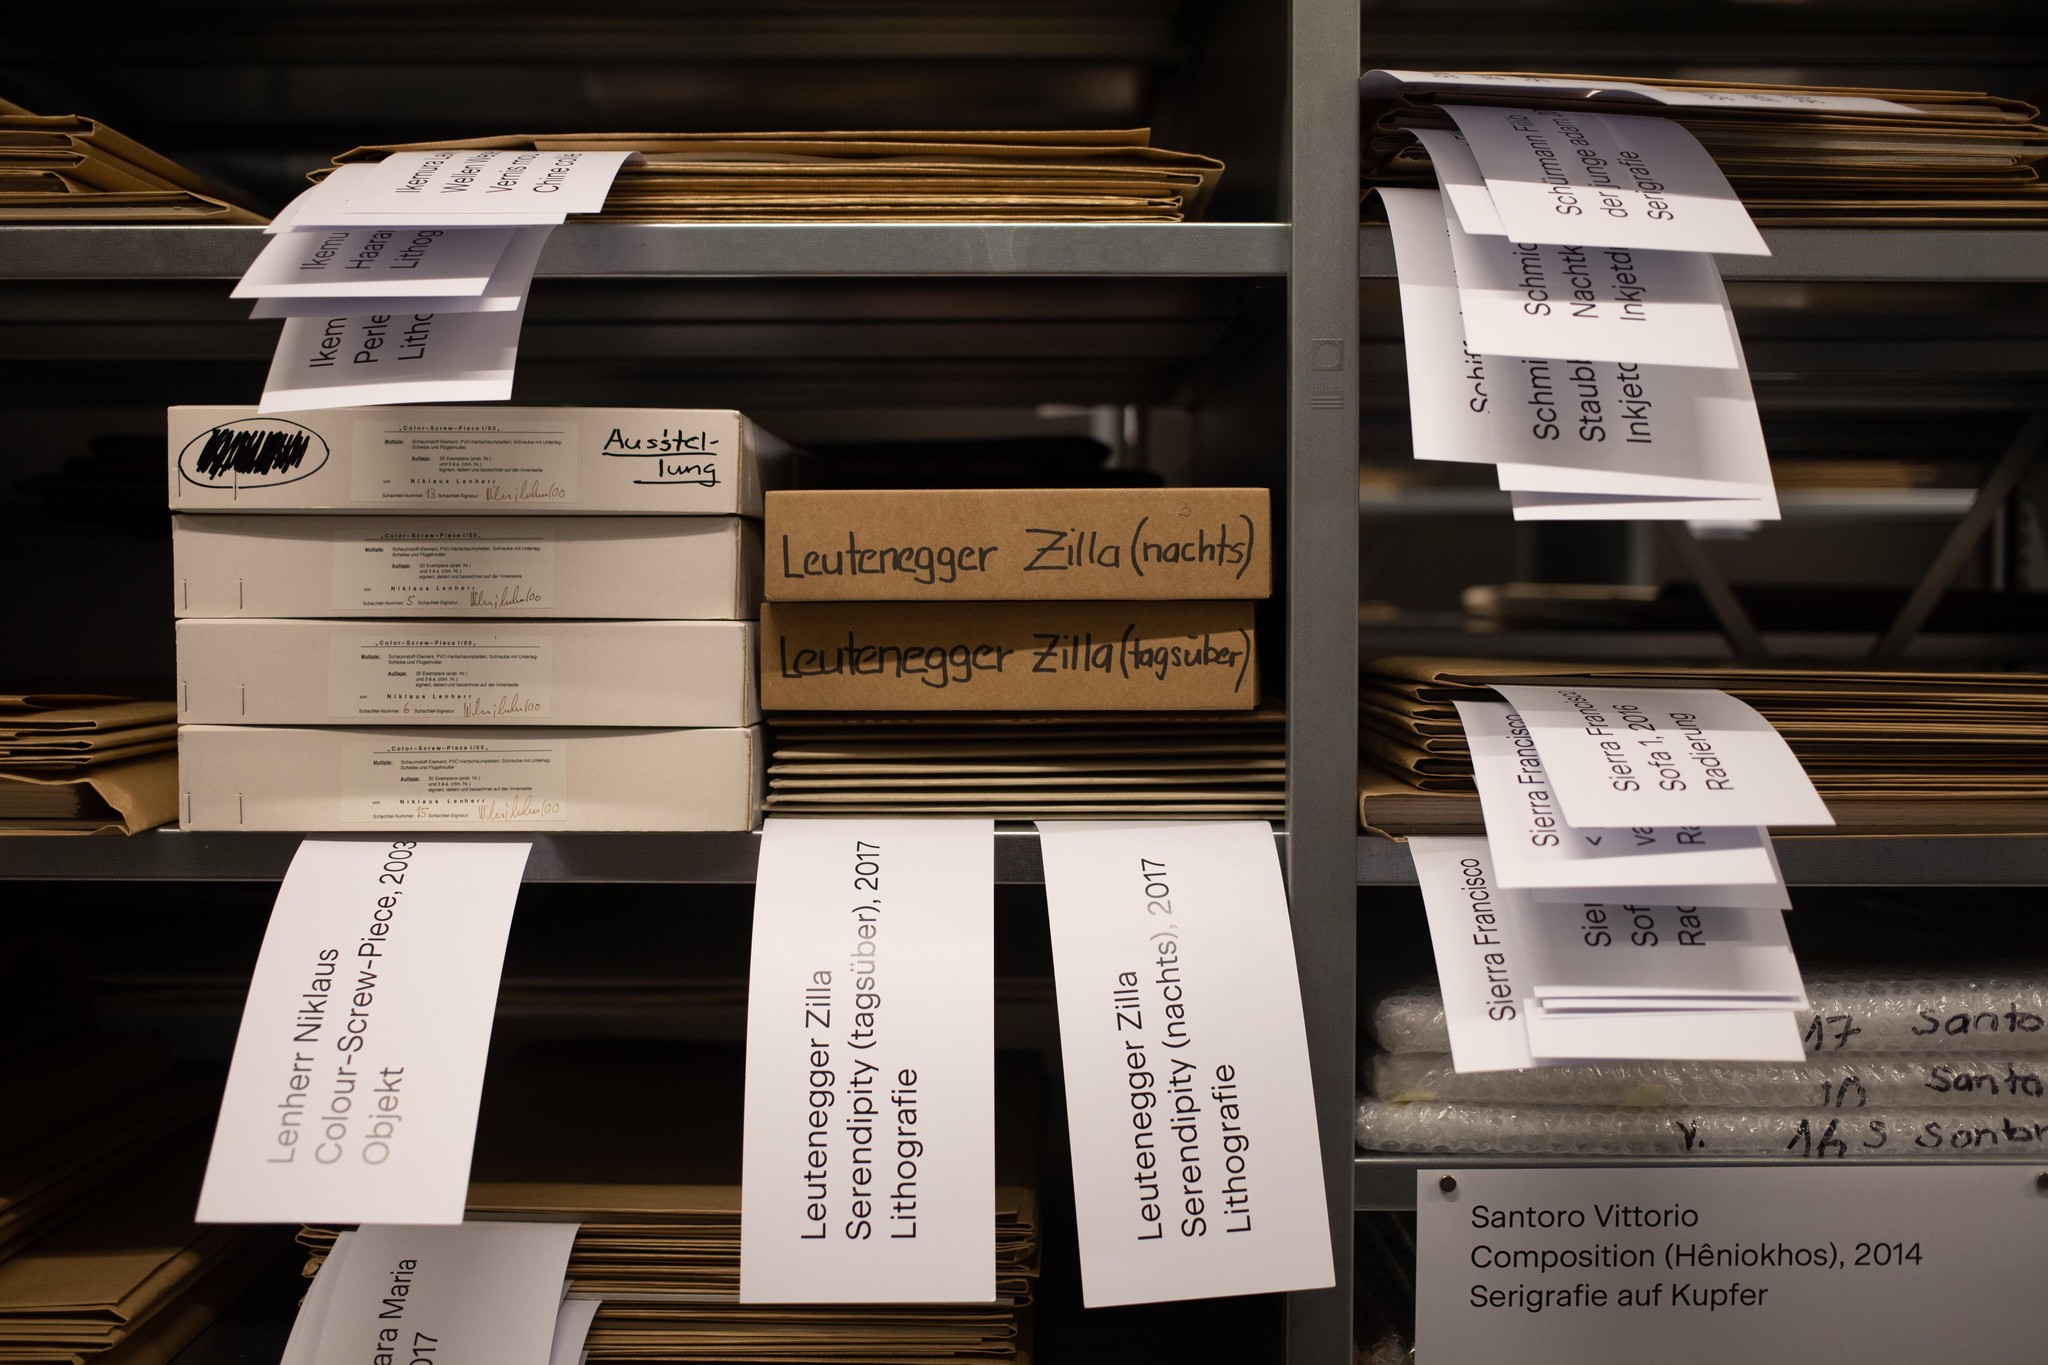 Ikemura
Wellen
Vernis mou
Chine collé
Ikemu
Haarar
Lithog
Ikem
Perle
Litho
„Color-Screw-Piece I/00„
Multiple: Schaumstoff-Element, PVC-Hartschaumplatten, Schraube mit Unterlag-
Scheibe und Flügelmutter
Auflage: 20 Exemplare (arab. Nr.)
und 3 é.a. (röm. Nr.)
signiert, datiert und bezeichnet auf der Innenseite
von Niklaus Lenherr
Schachtel-Nummer: 13 Schachtel-Signatur:
Ausstel-
lung
„Color-Screw-Piece I/00„
Multiple: Schaumstoff-Element, PVC-Hartschaumplatten, Schraube mit Unterlag-
Scheibe und Flügelmutter
Auflage: 20 Exemplare (arab. Nr.)
und 3 é.a. (röm. Nr.)
signiert, datiert und bezeichnet auf der Innenseite
von Niklaus Lenherr
Schachtel-Nummer: 5 Schachtel-Signatur:
„Color-Screw-Piece I/00„
Multiple: Schaumstoff-Element, PVC-Hartschaumplatten, Schraube mit Unterlag-
Scheibe und Flügelmutter
Auflage: 20 Exemplare (arab. Nr.)
und 3 é.a. (röm. Nr.)
signiert, datiert und bezeichnet auf der Innenseite
von Niklaus Lenherr
Schachtel-Nummer: 6 Schachtel-Signatur:
„Color-Screw-Piece I/00„
Multiple: Schaumstoff-Element, PVC-Hartschaumplatten, Schraube mit Unterlag-
Scheibe und Flügelmutter
Auflage: 20 Exemplare (arab. Nr.)
und 3 é.a. (röm. Nr.)
signiert, datiert und bezeichnet auf der Innenseite
von Niklaus Lenherr
Schachtel-Nummer: 15 Schachtel-Signatur:
3
Leutenegger Zilla (nachts)
Leutenegger Zilla (tagsüber)
Lenherr Niklaus
Colour-Screw-Piece, 2003
Objekt
Leutenegger Zilla
Serendipity (tagsüber), 2017
Lithografie
Leutenegger Zilla
Serendipity (nachts), 2017
Lithografie
ara Maria
017
Schürmann Filib
der junge adam, 2
Serigrafie
Schmid
Nachtk
Inkjetdr
Schmi
Staubl
Inkjetd
Schiff
Sierra Francisco
Sofa 1, 2016
Radierung
Sierra Francisco
Sierra Francisco
va
Ra
Sier
Sof
Rad
Sierra Francisco
17 Santo
Santo
V. 14 S Santor
Santoro Vittorio
Composition (Hêniokhos), 2014
Serigrafie auf Kupfer